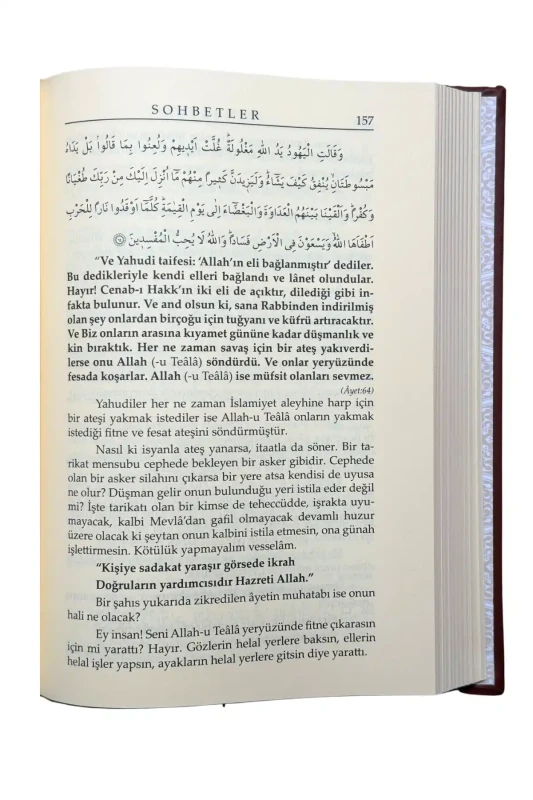 SOHBETLER 157
وَقَالَتِ الْيَهُودُ يَدُ اللّٰهِ مَغْلُولَةٌ غُلَّتْ اَيْدِيهِمْ وَلُعِنُوا بِمَا قَالُوا بَلْ يَدَاهُ
مَبْسُوطَتَانِ يُنْفِقُ كَيْفَ يَشَاءُ وَلَيَزِيدَنَّ كَثِيرًا مِنْهُمْ مَا اُنْزِلَ اِلَيْكَ مِنْ رَبِّكَ طُغْيَانًا
وَكُفْرًا وَاَلْقَيْنَا بَيْنَهُمُ الْعَدَاوَةَ وَالْبَغْضَاءَ اِلٰى يَوْمِ الْقِيٰمَةِ كُلَّمَا اَوْقَدُوا نَارًا لِلْحَرْبِ
اَطْفَاَهَا اللّٰهُ وَيَسْعَوْنَ فِى الْاَرْضِ فَسَادًا وَاللّٰهُ لَا يُحِبُّ الْمُفْسِدِينَ
"Ve Yahudi taifesi: 'Allah'ın eli bağlanmıştır' dediler.
Bu dedikleriyle kendi elleri bağlandı ve lânet olundular.
Hayır! Cenab-ı Hakk'ın iki eli de açıktır, dilediği gibi in-
fakta bulunur. Ve and olsun ki, sana Rabbinden indirilmiş
olan şey onlardan birçoğu için tuğyanı ve küfrü artıracaktır.
Ve Biz onların arasına kıyamet gününe kadar düşmanlık ve
kin bıraktık. Her ne zaman savaş için bir ateş yakıverdi-
lerse onu Allah (-u Teâlâ) söndürdü. Ve onlar yeryüzünde
fesada koşarlar. Allah (-u Teâlâ) ise müfsit olanları sevmez.
(Âyet:64)
Yahudiler her ne zaman İslamiyet aleyhine harp için
bir ateşi yakmak istediler ise Allah-u Teâlâ onların yakmak
istediği fitne ve fesat ateşini söndürmüştür.
Nasıl ki isyanla ateş yanarsa, itaatla da söner. Bir ta-
rikat mensubu cephede bekleyen bir asker gibidir. Cephede
olan bir asker silahını çıkarsa bir yere atsa kendisi de uyusa
ne olur? Düşman gelir onun bulunduğu yeri istila eder değil
mi? İşte tarikatı olan bir kimse de teheccüdde, işrakta uyu-
mayacak, kalbi Mevlâ'dan gafil olmayacak devamlı huzur
üzere olacak ki şeytan onun kalbini istila etmesin, ona günah
işlettirmesin. Kötülük yapmayalım vesselâm.
"Kişiye sadakat yaraşır görsede ikrah
Doğruların yardımcısıdır Hazreti Allah."
Bir şahıs yukarıda zikredilen âyetin muhatabı ise onun
hali ne olacak?
Ey insan! Seni Allah-u Teâlâ yeryüzünde fitne çıkarasın
için mi yarattı? Hayır. Gözlerin helal yerlere baksın, ellerin
helal işler yapsın, ayakların helal yerlere gitsin diye yarattı.